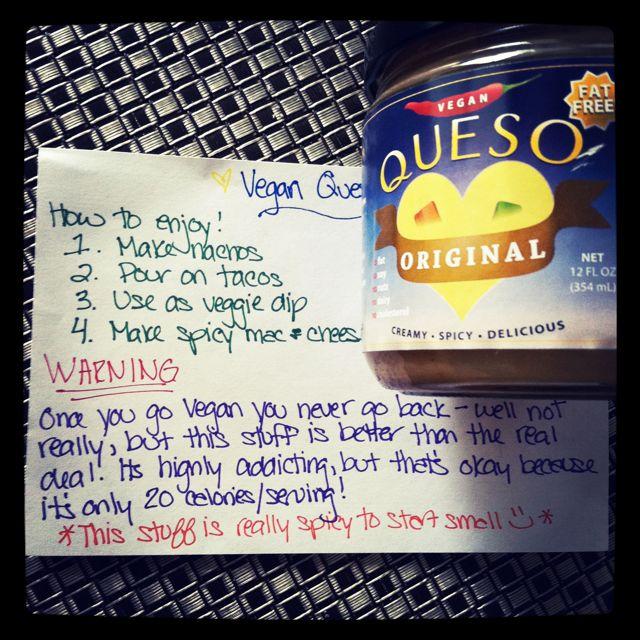 VEGAN
FAT
FREE
QUESO
ORIGINAL
fat
soy
nuts
dairy
cholesterol
NET
12 FL OZ
(354 mL)
CREAMY • SPICY • DELICIOUS
Vegan Que
How to enjoy!
1. Make nachos
2. Pour on tacos
3. Use as veggie dip
4. Make spicy mac + chees
WARNING
Once you go vegan you never go back - well not
really, but this stuff is better than the real
deal! Its highly addicting, but thats okay because
it's only 20 calories/serving!
*This stuff is really spicy so start small *